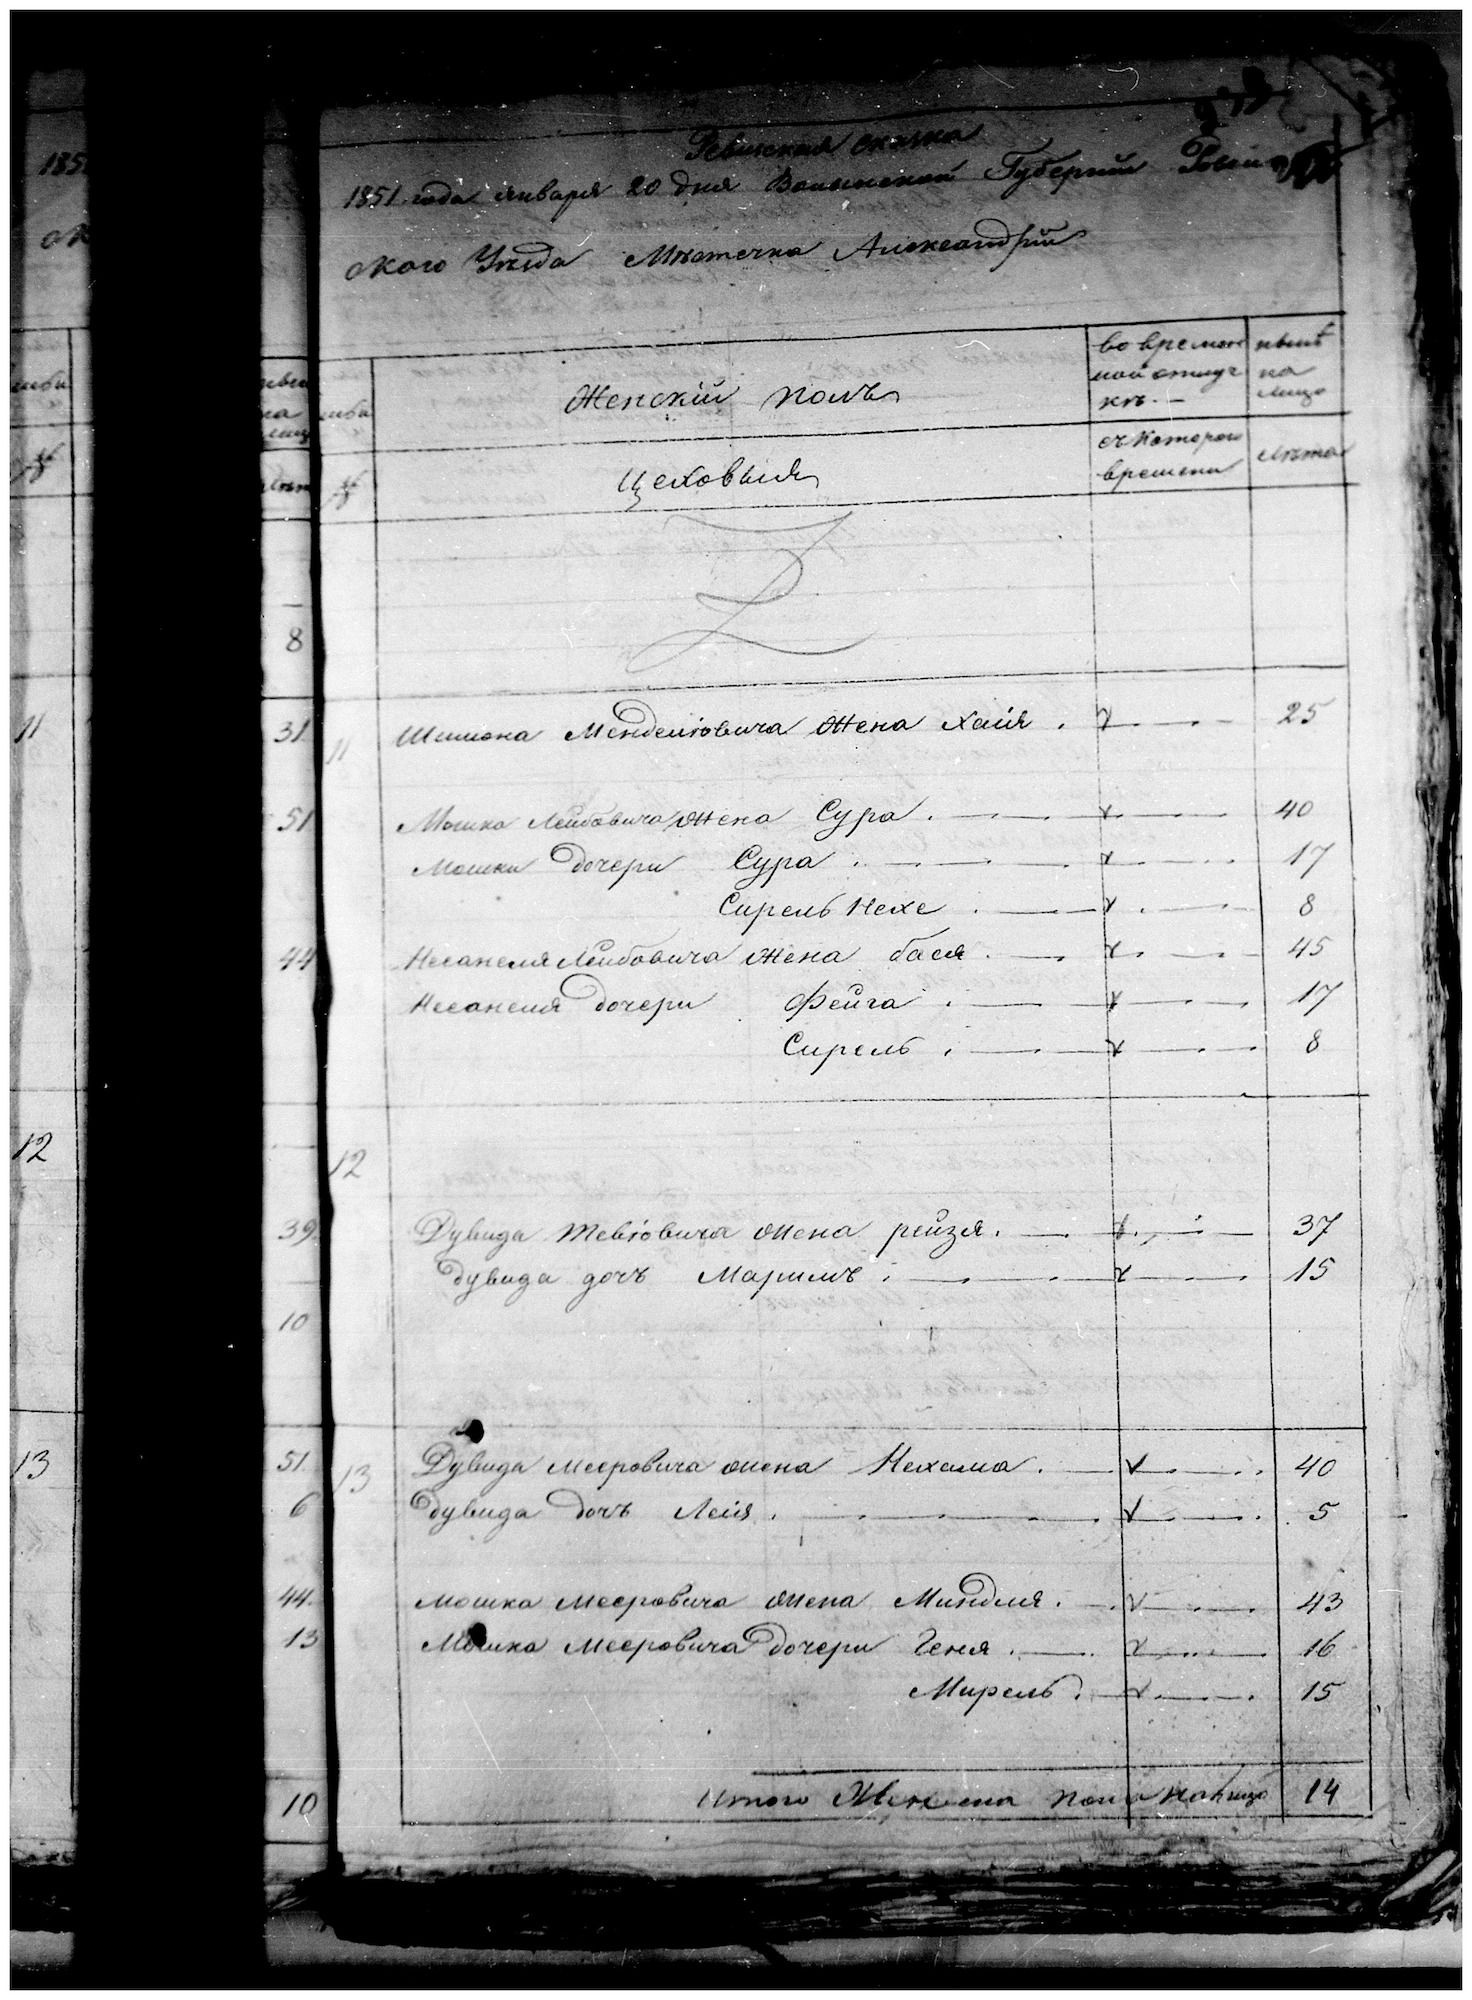 1851
Ревизская сказка
1851 года января 20 дня Волынской Губернии Ровен
ского Уезда Местечка Александрии
Женскій полъ
во времен
ной отлуч
кѣ
нынѣ
на
лицо
Цеховыя
съ котораго
времени
лѣта
8
11
31
11
Шимона Менделіовича жена Хаія 25
51
Мошка Лейбовича жена Сура 40
Мошки дочери Сура 17
Сирель Нехе 8
44
Несанеля Лейбовича жена бася 45
Несанеля дочери Фейга 17
Сирель 8
12
12
39
Дувида Тевіовича жена рейзя 37
Дувида дочъ Маримъ 15
10
13
51
13
Дувида Мееровича жена Нехама 40
6
Дувида дочъ Лея 5
44
Мошка Мееровича жена Миндля 43
13
Мошка Мееровича дочери Геня 16
Мирель 15
10
Итого Женска пола налицо 14